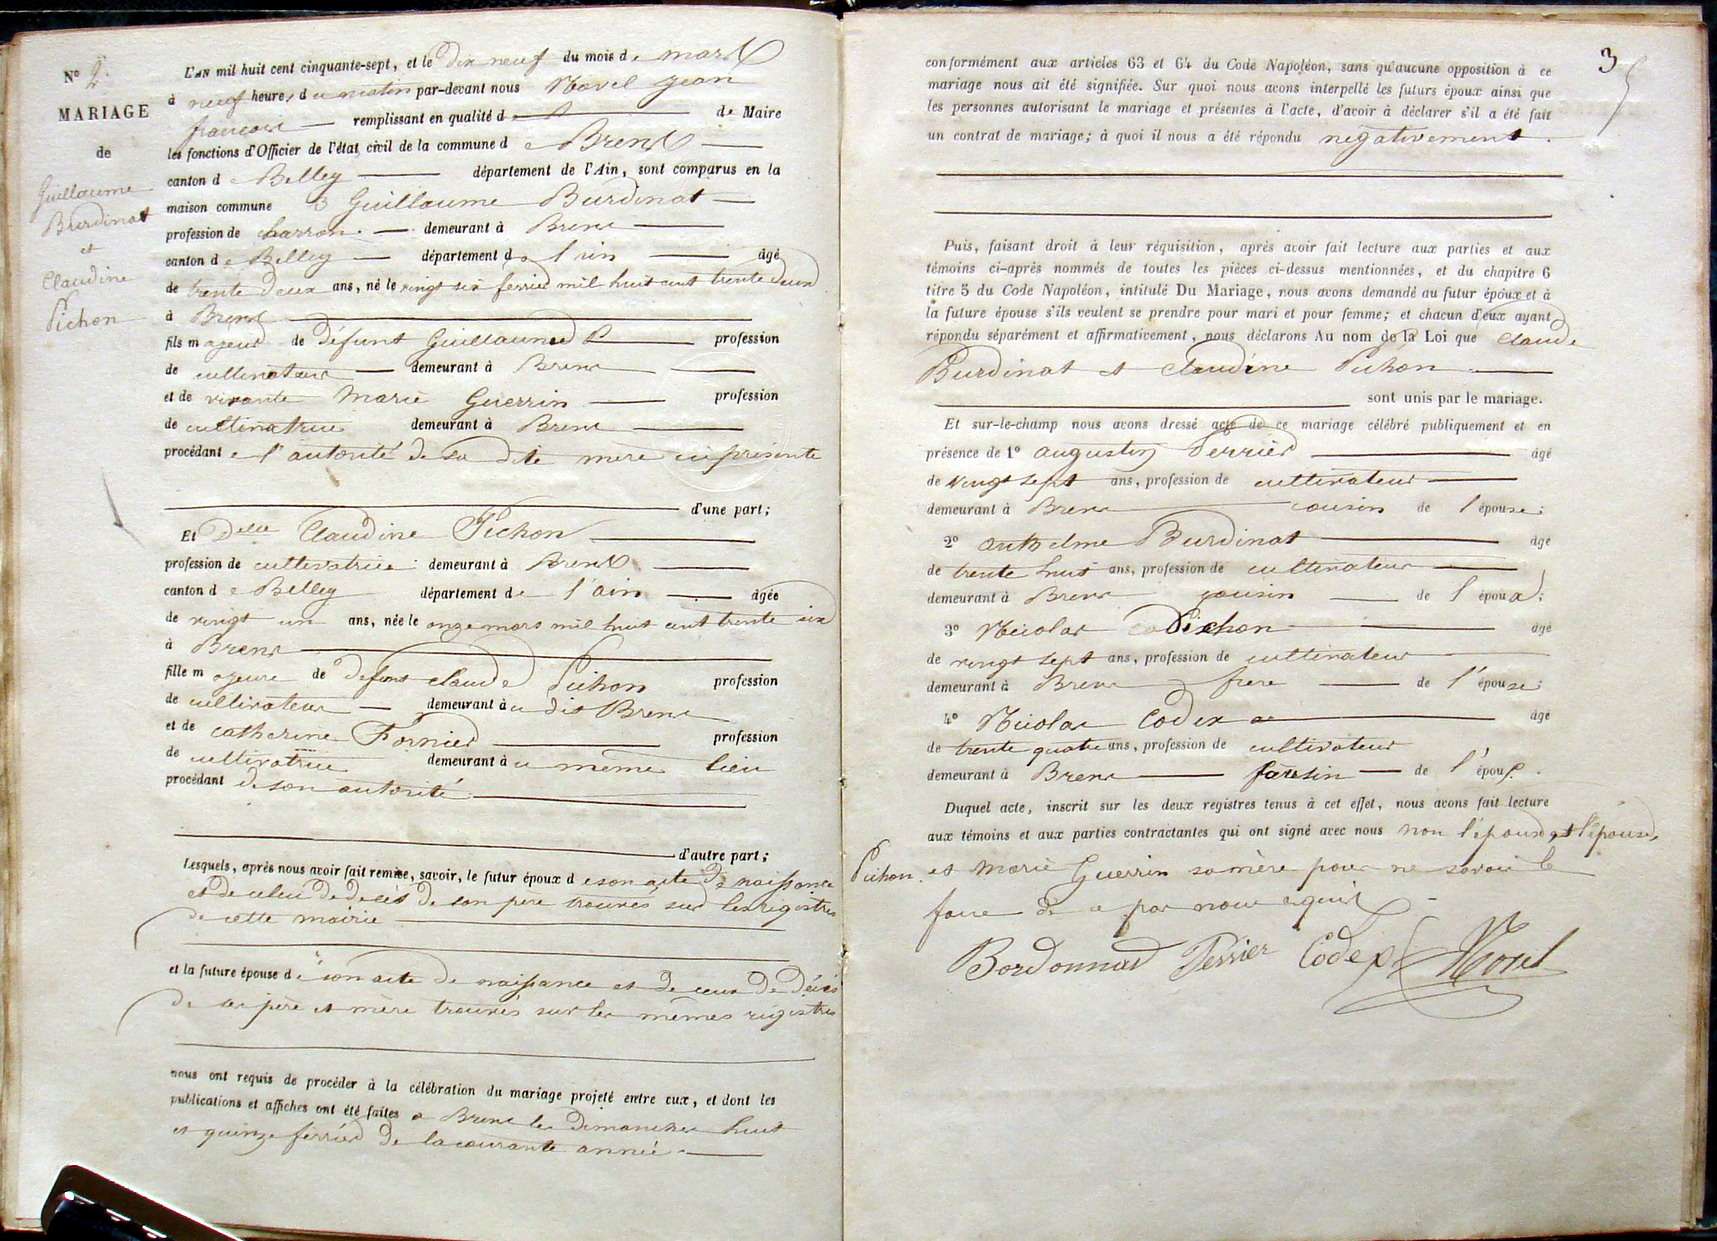 N° 2.
MARIAGE
de
Guillaume
Burdinat
et
Claudine
Pichon
L'AN mil huit cent cinquante-sept, et le dix neuf du mois de mars
à neuf heures du matin par-devant nous Morel Jean
françois remplissant en qualité de de Maire
les fonctions d'Officier de l'état civil de la commune de Brens
canton de Belley département de l'Ain, sont comparus en la
maison commune Guillaume Burdinat
profession de charron demeurant à Brens
canton de Belley département de l'ain âgé
de trente deux ans, né le vingt six février mil huit cent trente deux
à Brens
fils majeur de défunt Guillaume profession
de cultivateur demeurant à Brens
et de vivante Marie Guerrin profession
de cultivatrice demeurant à Brens
procédant de l'autorité de sa dite mère ici présente
d'une part;
Et Delle Claudine Pichon
profession de cultivatrice demeurant à Brens
canton de Belley département de l'ain âgée
de vingt un ans, née le onze mars mil huit cent trente six
à Brens
fille majeure de défunt Claude Pichon profession
de cultivateur demeurant au dit Brens
et de catherine Fornier profession
de cultivatrice demeurant au même lieu
procédant de son autorité
d'autre part;
Lesquels, après nous avoir fait remise, savoir, le futur époux de son acte de naissance
et de celui de décès de son père trouvés sur les registres
de cette mairie
et la future épouse de son acte de naissance et de ceux de décès
de ses père et mère trouvés sur les mêmes registres
nous ont requis de procéder à la célébration du mariage projeté entre eux, et dont les
publications et affiches ont été faites à Brens les dimanches huit
et quinze février de la courante année
3
conformément aux articles 63 et 64 du Code Napoléon, sans qu'aucune opposition à ce
mariage nous ait été signifiée. Sur quoi nous avons interpellé les futurs époux ainsi que
les personnes autorisant le mariage et présentes à l'acte, d'avoir à déclarer s'il a été fait
un contrat de mariage; à quoi il nous a été répondu négativement.
Puis, faisant droit à leur réquisition, après avoir fait lecture aux parties et aux
témoins ci-après nommés de toutes les pièces ci-dessus mentionnées, et du chapitre 6
titre 5 du Code Napoléon, intitulé Du Mariage, nous avons demandé au futur époux et à
la future épouse s'ils veulent se prendre pour mari et pour femme; et chacun d'eux ayant
répondu séparément et affirmativement, nous déclarons Au nom de la Loi que Claude
Burdinat et Claudine Pichon
sont unis par le mariage.
Et sur-le-champ nous avons dressé acte de ce mariage célébré publiquement et en
présence de 1° augustin Perrier âgé
de vingt sept ans, profession de cultivateur
demeurant à Brens cousin de l'épouse;
2° anthelme Burdinat âgé
de trente huit ans, profession de cultivateur
demeurant à Brens cousin de l'époux;
3° Nicolas Pichon âgé
de vingt sept ans, profession de cultivateur
demeurant à Brens frere de l'épouse;
4° Nicolas Codex âgé
de trente quatre ans, profession de cultivateur
demeurant à Brens de l'épou
Duquel acte, inscrit sur les deux registres tenus à cet effet, nous avons fait lecture
aux témoins et aux parties contractantes qui ont signé avec nous non l'époux et l'épouse,
Pichon et Marie Guerrin sa mère pour ne savoir le
faire de ce par nous requis
Bordonnat Perrier Codex Morel